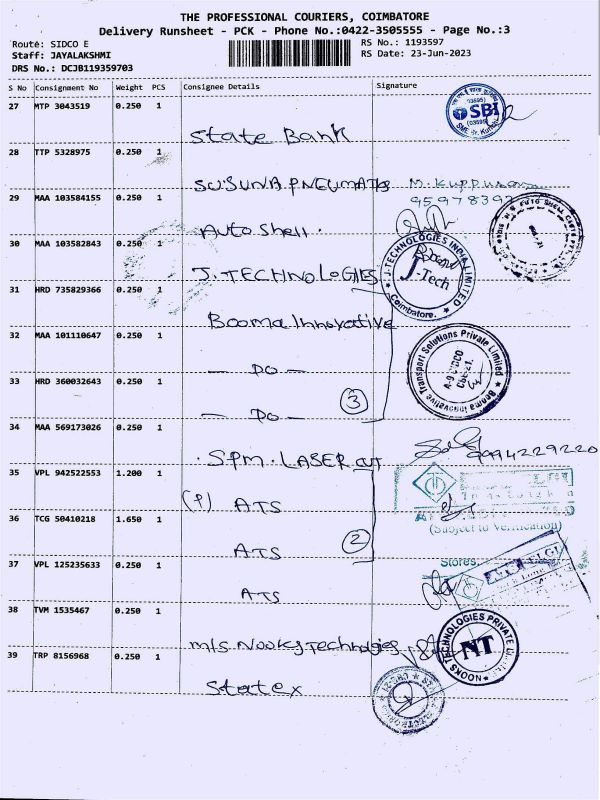 THE PROFESSIONAL COURIERS, COIMBATORE
Delivery Runsheet - PCK - Phone No.:0422-3505555 - Page No.:3
Route: SIDCO E
Staff: JAYALAKSHMI
DRS No.: DCJB119359703
RS No.: 1193597
RS Date: 23-Jun-2023
S No Consignment No Weight PCS Consignee Details Signature
27 MTP 3043519 0.250 1
State Bank
SBI
28 TTP 5328975 0.250 1
SUSUNA PNEUMATIS M. Kuppusam
29 MAA 103584155 0.250 1
Auto Shell.
30 MAA 103582843 0.250 1
J. TECHNOLOGIES
J-TECHNOLOGIES INDIA LIMITED
J-Tech
Coimbatore.
31 HRD 735829366 0.250 1
Booma Innovative
32 MAA 101110647 0.250 1
— DO —
Booma Innovative Transport Solutions Private Limited
A-9 SIDCO
33 HRD 360032643 0.250 1
— DO — 3
34 MAA 569173026 0.250 1
S.P.M. LASER CUT 9994229220
35 VPL 942522553 1.200 1
(P) ATS
36 TCG 50410218 1.650 1
ATS 2
(Subject to Verification)
37 VPL 125235633 0.250 1
ATS
Stores.
ELGI
38 TVM 1535467 0.250 1
M/S. Nooks Technologies
NOOKS TECHNOLOGIES PRIVATE LIMITED
NT
39 TRP 8156968 0.250 1
Statex